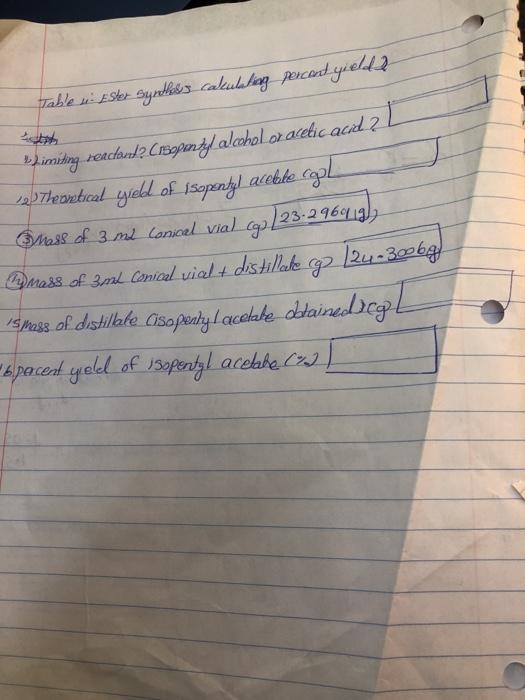 Table 4: Ester Synthesis calculating percent yield?
1) Limiting reactant? (isopentyl alcohol or acetic acid?
12) Theoretical yield of isopentyl acetate (g)
③ Mass of 3 ml Conical vial (g) 23.2969
④ Mass of 3ml Conical vial + distillate (g) 24.3006g
15 Mass of distillate (isopentyl acetate obtained) (g)
16 percent yield of isopentyl acetate (%)